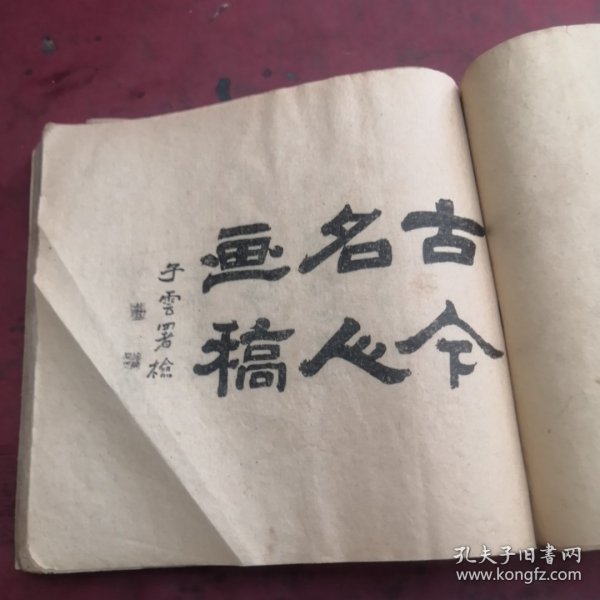 古今
名人
画稿
子雲署检
孔夫子旧書网
www.kongfz.com